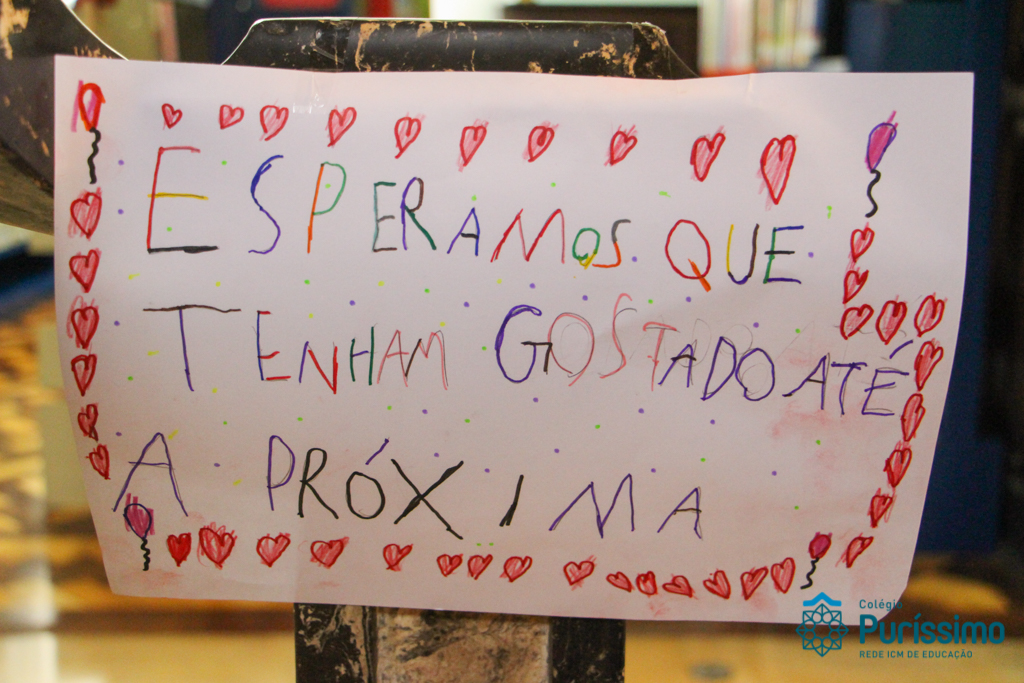 ESPERAMOS QUE
TENHAM GOSTADO ATÉ
A PRÓXIMA
Colégio
Puríssimo
REDE ICM DE EDUCAÇÃO